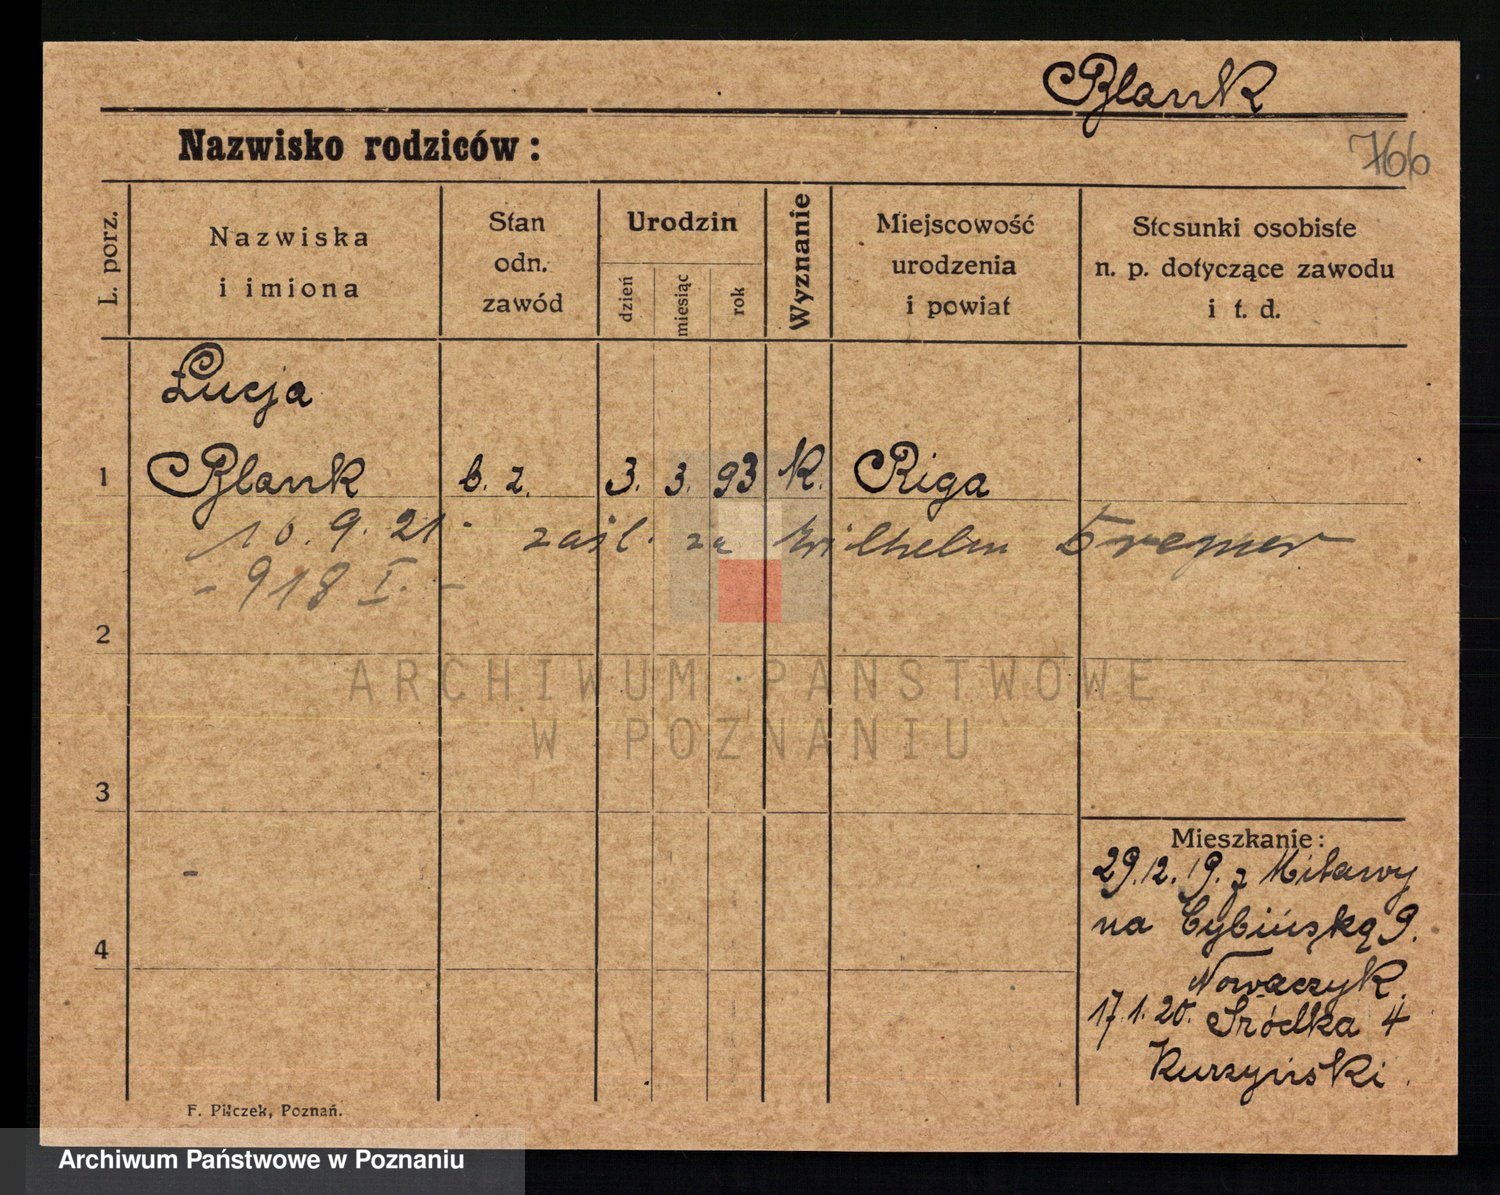 Blank
Nazwisko rodziców:
766
L. porz.
Nazwiska i imiona
Stan odn. zawód
Urodzin
dzień
miesiąc
rok
Wyznanie
Miejscowość urodzenia i powiat
Stosunki osobiste n. p. dotyczące zawodu i t. d.
Łucja
1 Blank b. z. 3. 3. 93 K. Riga
10. 9. 21. zaśl. za Wilhelm
- 918 I. -
2
ARCHIWUM PAŃSTWOWE
W POZNANIU
3
Mieszkanie:
29.12.19. z Mitawy
na Cybińską 9.
4
Nowaczyk.
17.1.20. Śródka 4
Kurzyński.
F. Pilczek, Poznań.
Archiwum Państwowe w Poznaniu